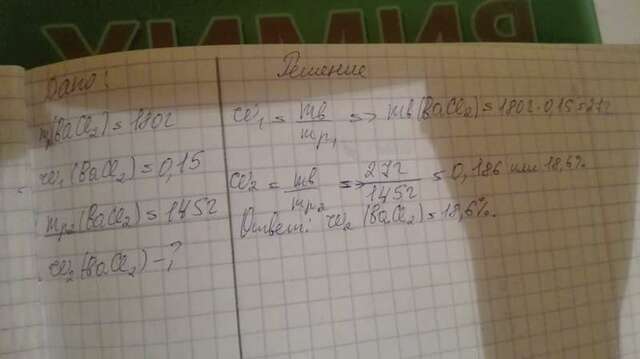 Дано:
m(BaCl₂) = 180г
w₁(BaCl₂) = 0,15
mр₂(BaCl₂) = 145г
w₂(BaCl₂) - ?
Решение
w₁ = mв/mр₁ => mв(BaCl₂) = 180г · 0,15 = 27г
w₂ = mв/mр₂ => 27г/145г = 0,186 или 18,6%
Ответ: w₂(BaCl₂) = 18,6%.